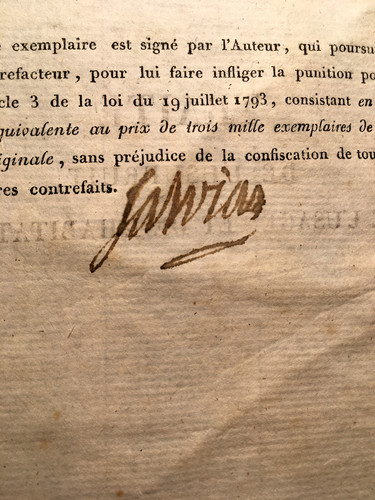 exemplaire est signé par l'Auteur, qui poursu
refacteur, pour lui faire infliger la punition po
cle 3 de la loi du 19 juillet 1793, consistant en
quivalente au prix de trois mille exemplaires de
iginale, sans préjudice de la confiscation de tou
res contrefaits.